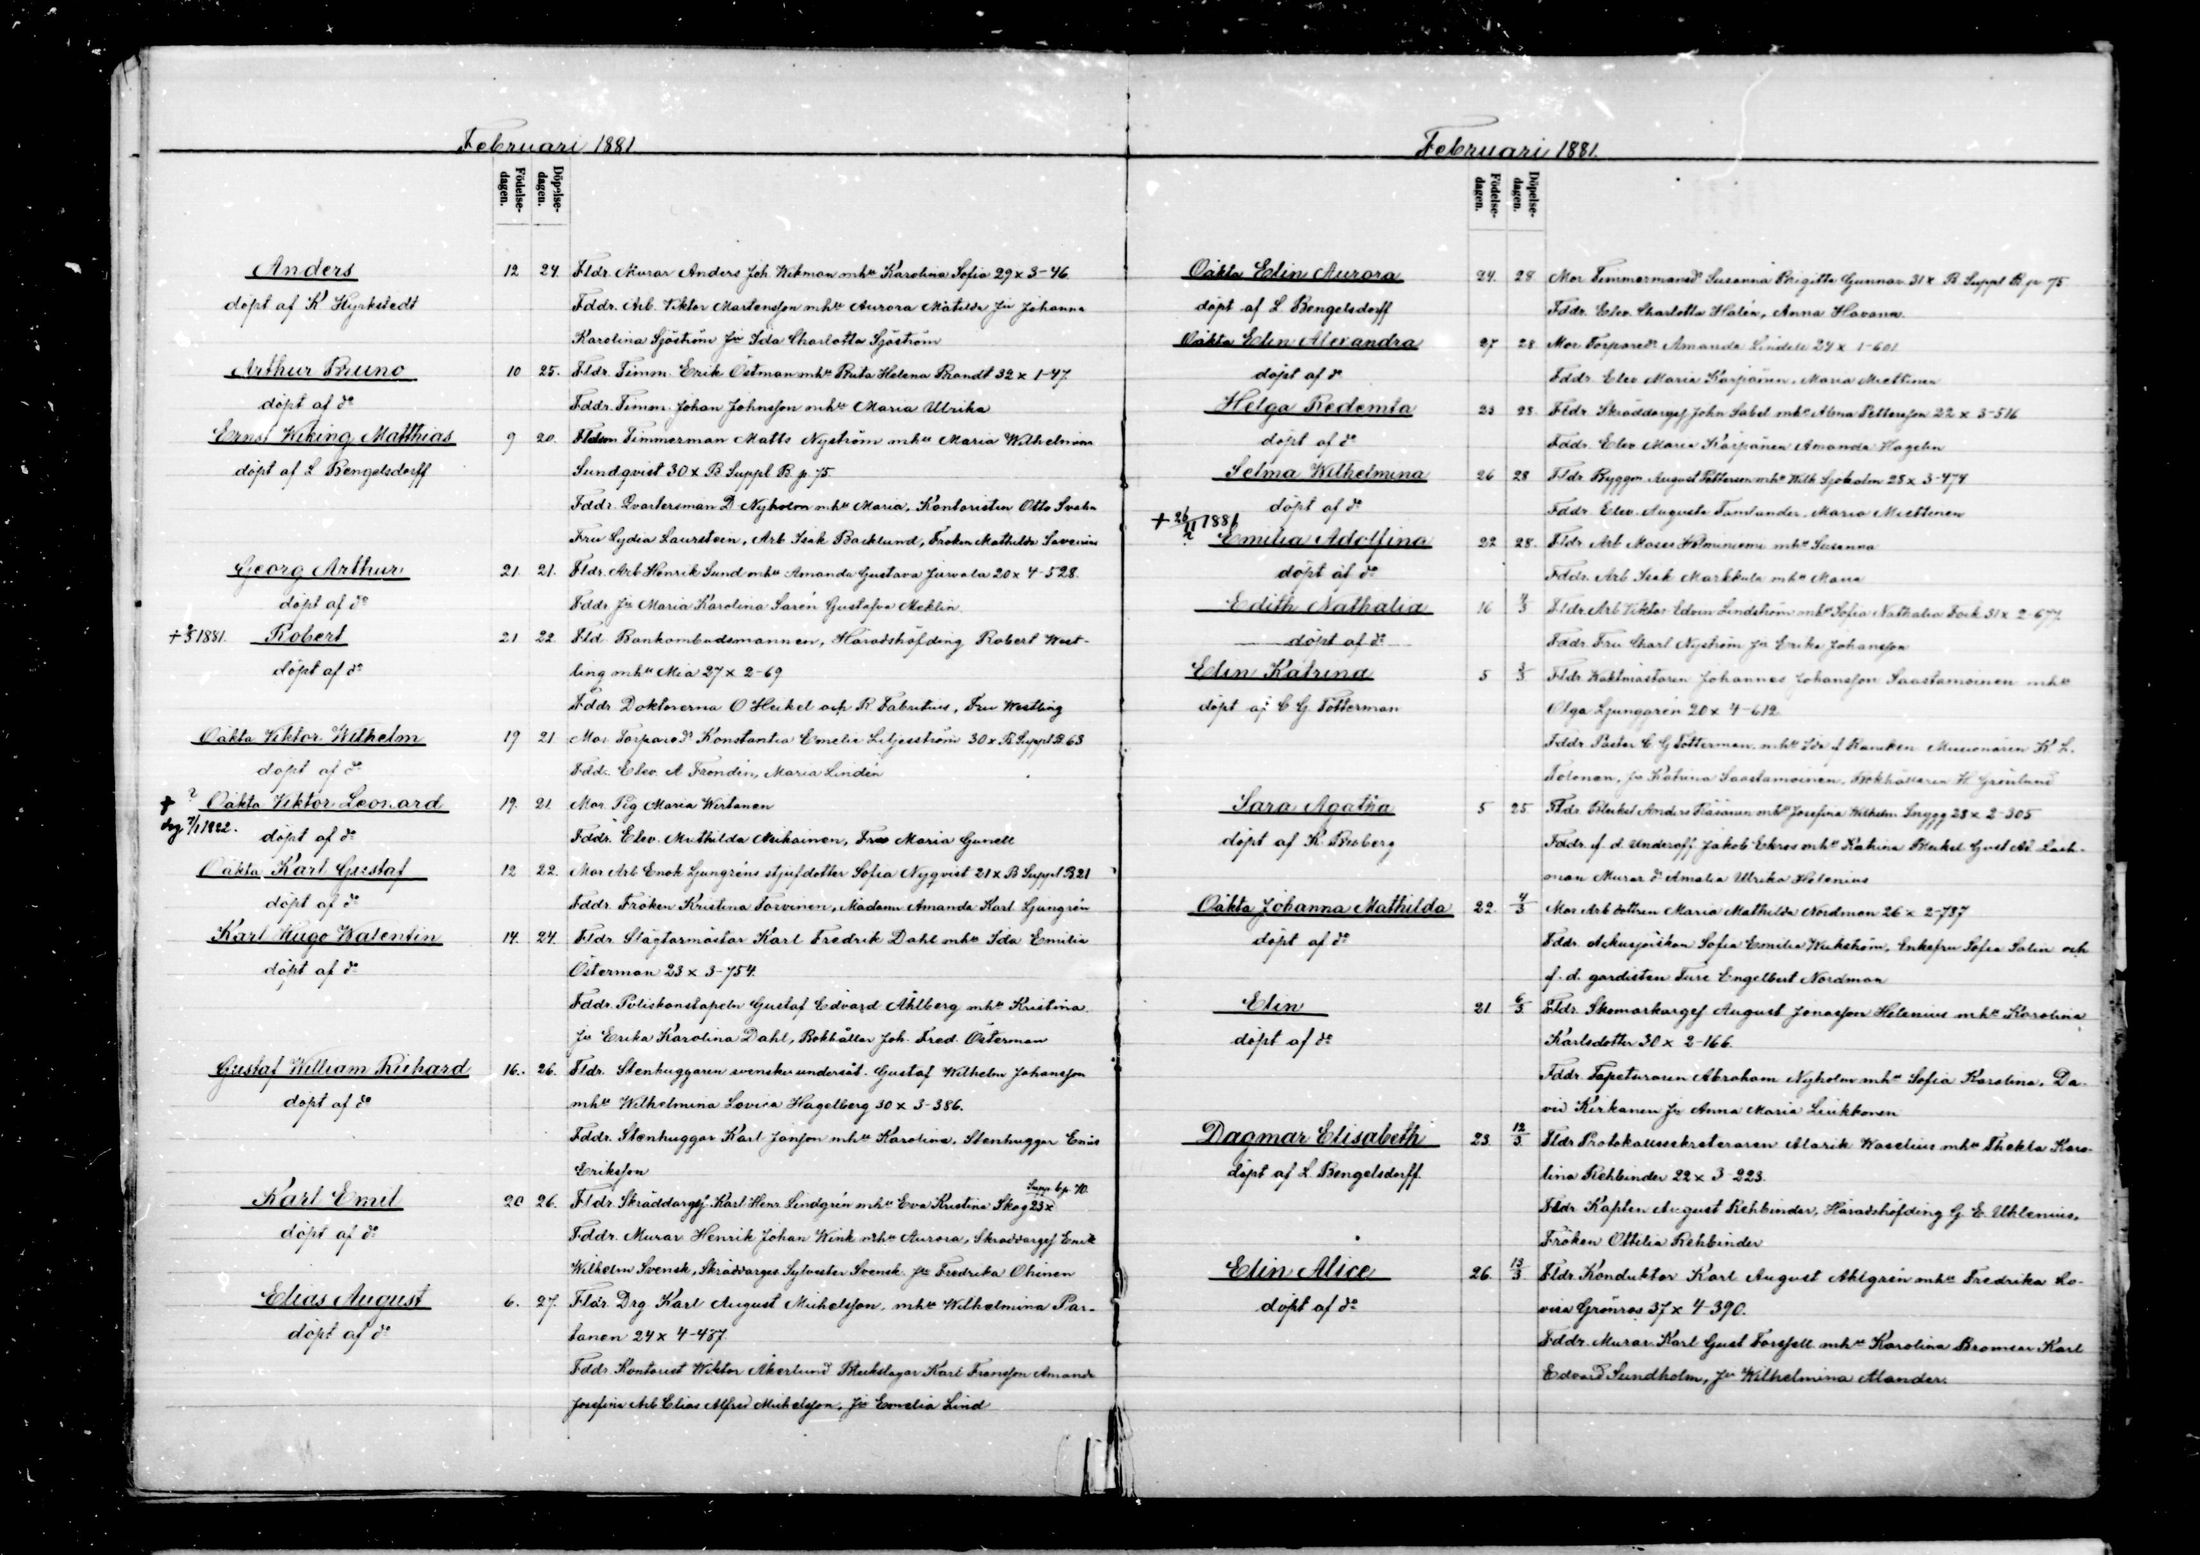 Februari 1881
Födelse-dagen.
Döpelse-dagen.
Anders 12 24. Fldr. Murar Anders Joh Wikman mhu Karolina Sofia 29 x 3-46
döpt af K Hyrkstedt Fddr. Arb. Viktor Martensson mhu Aurora Matilda Jfr Johanna
Karolina Sjöström Jfr Ida Charlotta Sjöström
Arthur Bruno 10 25. Fldr. Timm. Erik Östman mhu Ruta Helena Brandt 32 x 1-47.
döpt af do Fddr. Timm. Johan Johnsson mhu Maria Ulrika
Ernst Wiking Matthias 9 20. Timmerman Matts Nyström mhu Maria Wilhelmina
döpt af L Bengelsdorff Sundqvist 30 x B Suppl B p. 75
Fddr. Qvartersman D Nyholm mhu Maria, Kontoristen Otto
Fru Lydia Laurstein, Arb Isak Backlund, Fröken Mathilda Savenius
Georg Arthur 21. 21. Fldr. Arb Henrik Sund mhu Amanda Gustava Jurvala 20 x 4-528.
döpt af do Fddr Jfr Maria Karolina Sarén Gustafva Meklin.
+ 1881. Robert 21 22. Fld. Bankombudsmannen, Häradshöfding Robert West-
döpt af do ling mhu Mia 27 x 2-69
Fddr Doktorerna O Heikel och R Fabritius, Fru Westling
Oäkta Viktor Wilhelm 19 21 Mor Torpared. Konstantia Emelie Liljesström 30 x B Suppl B. 63
döpt af do Fddr. Elev. A Frondén, Maria Lindén
+ ? Oäkta Viktor Leonard 19. 21. Mor. Pig Maria Wirtanen
1922. döpt af do Fddr. Elev. Mathilda Mukainen, Fru Maria Gunell
Oäkta Karl Gustaf 12 22. Mor Arb Enok Ljungréns stjufdotter Sofia Nyqvist 21 x B Suppl B 21
döpt af do Fddr. Fröken Kristina Torvinen, Madam Amanda Karl Ljungrén
Karl Hugo Walentin 14. 24. Fldr. Slagtarmästar Karl Fredrik Dahl mhu Ida Emilia
döpt af do Österman 23 x 3-754.
Fddr. Poliskonstapeln Gustaf Edvard Åhlberg mhu Kristina.
Jfr Erika Karolina Dahl, Bokhållar Joh. Fred. Österman
Gustaf William Richard 16. 26. Fldr. Stenhuggaren svenske undersåt. Gustaf Wilhelm Johansson
döpt af do mhu Wilhelmina Lovisa Hagelberg 30 x 3-386.
Fddr. Stenhuggar Karl Janson mhu Karolina, Stenhuggar
Eriksson
Supp b p 70.
Karl Emil 20 26. Fldr. Skräddargs Karl Henr Lindgrén mhu Eva Kristina Skog 23 x
döpt af do Fddr. Murar Henrik Johan Wink mhu Aurora, Skräddargs Emil
Wilhelm Svensk, Skräddargs Sylvester Svensk. Jfr Fredrika Ohinen
Elias August 6. 27. Fldr. Drg Karl August Michelsson, mhu Wilhelmina Par-
döpt af do tanen 24 x 4-487.
Fddr. Kontorist Wiktor Åkerlund Bleckslagar Karl Fransson Amanda
Josefina Arb Elias Alfred Michelsson, Jfr Emelia Lind
Februari 1881.
Födelse-dagen.
Döpelse-dagen.
Oäkta Elin Aurora 24. 28 Mor Timmermansd. Susanna Brigitta Gunnar 31 x B Suppl B p 75
döpt af L Bengelsdorff Fddr. Elev. Charlotta Halén, Anna Havana.
Oäkta Elin Alexandra 27 28. Mor Torpared. Amanda Lindell 24 x 1-601
döpt af do Fddr. Elev Maria Karpänen, Maria Miettinen
Helga Redemta 23 28. Fldr. Skräddargs John Sabel mhu Alma Pettersson 22 x 3-516
döpt af do Fddr. Elev Maria Karpänen Amanda Hagelin
Selma Wilhelmina 26 28 Fldr. Byggm August Petterson mhu Wilh Sjöholm 28 x 3-474
döpt af do Fddr. Elev. Augusta Tamlander, Maria Miettinen
+ 26/II 1881 ?
Emilia Adolfina 22 28. Fldr. Arb Moses Helminiemi mhu Susanna
döpt af do Fddr. Arb Isak Markkula mhu Maria
Edith Nathalia 16 Fldr. Arb Viktor Edvin Lindström mhu Sofia Nathalia Fock 31 x 2-677.
döpt af do Fddr. Fru Charl Nyström Jfr Erika Johansson
Elin Katrina 5 Fldr. Vaktmästaren Johannes Johansson Saastamoinen mhu
döpt af C G Totterman Olga Ljunggrén 20 x 4-612.
Fddr. Pastor C. G Totterman mhu Ida Missionären K L.
Tolonen, Jfr Katrina Saastamoinen, Bokhållaren H Grönlund
Sara Agatha 5 25. Fldr. Blecksl Anders Räsänen mhu Josefina Wilhelm. Snygg 28 x 2-305
döpt af K Broberg Fddr. f. d. Underoff. Jakob Ekroos mhu Katrina Blecksl Gust Ad. Lack-
man Murar d. Amalia Ulrika Helenius
Oäkta Johanna Mathilda 22 4/3 Mor Arb dottren Maria Mathilda Nordman 26 x 2-787
döpt af do Fddr. Ackusjörskan Sofia Emilia Wickström, Enkefru Sofia Salin och
f. d. gardisten Ture Engelbert Nordman
Elin 21 6/3 Fldr. Skomakargs August Jonasson Helenius mhu Karolina
döpt af do Karlsdotter 30 x 2-166.
Fddr. Tapetseraren Abraham Nyholm mhu Sofia Karolina, Da-
vid Kirkanen Jfr Anna Maria Liukkonen
Dagmar Elisabeth 23. 12/3 Fldr Protokollssekreteraren Alarik Waselius mhu Thekla Karo-
döpt af L Bengelsdorff. lina Rehbinder 22 x 3-223.
Fddr Kapten August Rehbinder, Häradshöfding G. E. Uhlenius,
Fröken Ottilia Rehbinder
Elin Alice 26. 13/3 Fldr. Konduktor Karl August Ahlgrén mhu Fredrika Lo-
döpt af do visa Grönros 37 x 4-390.
Fddr. Murar Karl Gust Forssell mhu Karolina Bromsar Karl
Edvard Sundholm, Jfr Wilhelmina Alander.